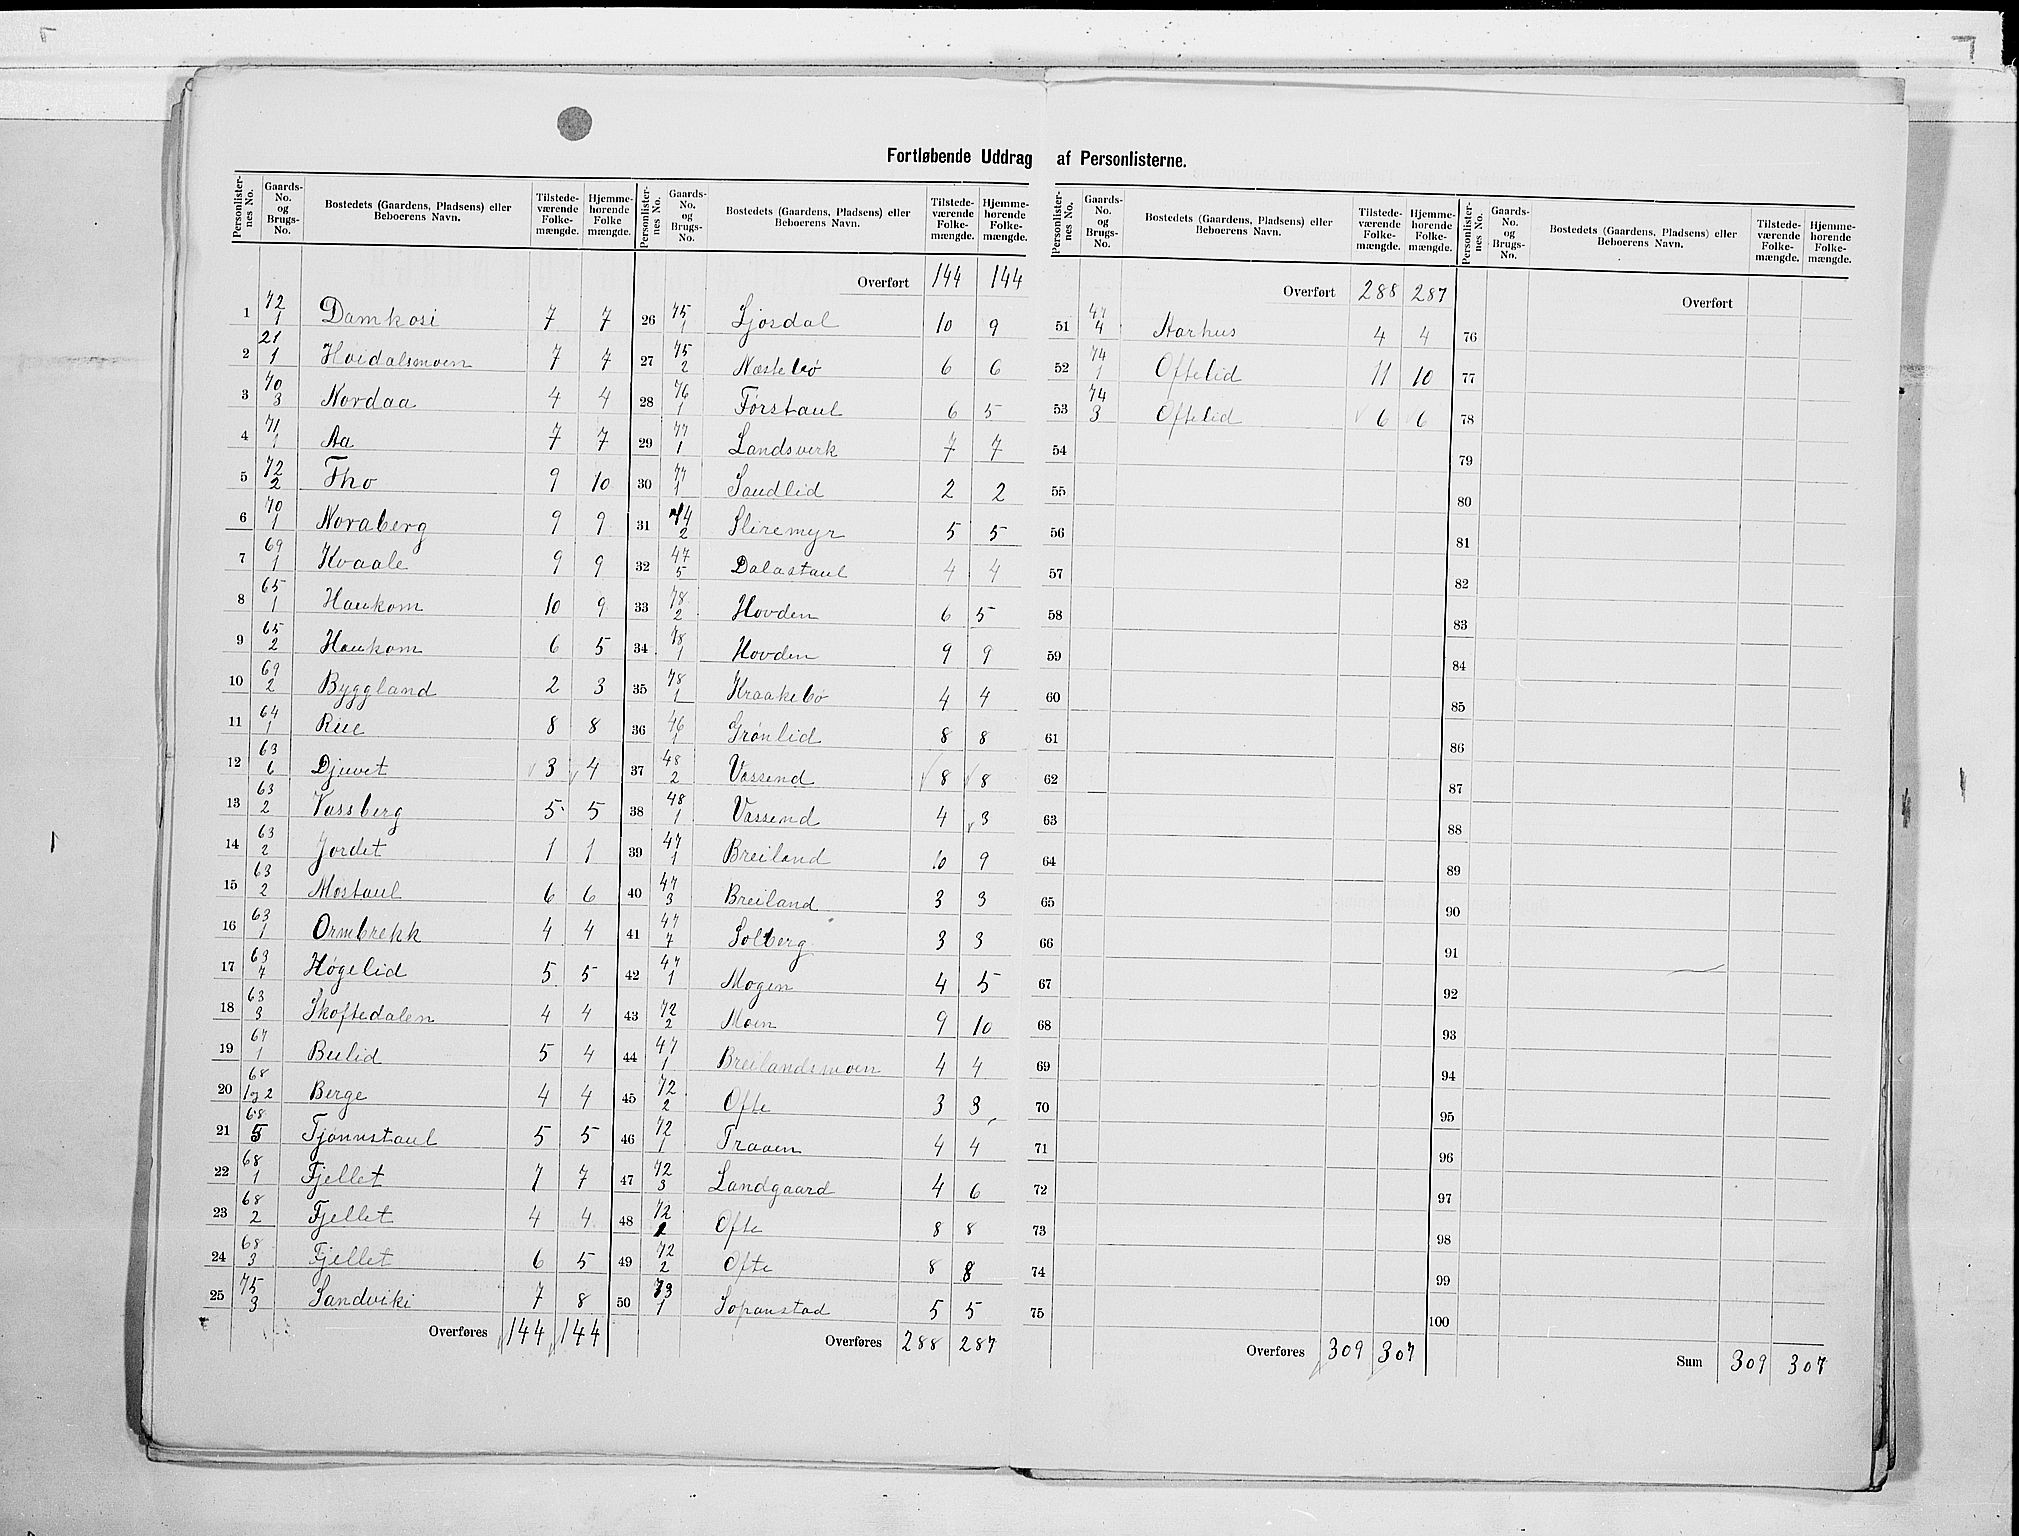 Fortløbende Uddrag af Personlisterne.
Personlister-nes No. Gaards-No. og Brugs-No. Bostedets (Gaardens, Pladsens) eller Beboerens Navn. Tilstede-værende Folke-mængde. Hjemme-hörende Folke-mængde.
1 72/1 Damkosi 7 7
2 21/1 Hvidalsmoen 7 7
3 70/3 Nordaa 4 4
4 71/1 Aa 7 7
5 72/2 Tho 9 10
6 70/1 Noraberg 9 9
7 69/1 Kvaale 9 9
8 65/1 Haukom 10 9
9 65/2 Haukom 6 5
10 69/2 Byggland 2 3
11 64/1 Rue 8 8
12 63/6 Djuvet 3 4
13 63/2 Vassberg 5 5
14 63/2 Jordet 1 1
15 63/2 Mostaul 6 6
16 63/1 Ormbrekk 4 4
17 63/7 Høgelid 5 5
18 63/3 Skoftedalen 4 4
19 67/1 Beelid 5 4
20 68/1 og 2 Berge 4 4
21 68/5 Tjønnstaul 5 5
22 68/1 Fjellet 7 7
23 68/2 Fjellet 4 4
24 68/3 Fjellet 6 5
25 75/3 Sandviki 7 8
Overføres 144 144
Personlister-nes No. Gaards-No. og Brugs-No. Bostedets (Gaardens, Pladsens) eller Beboerens Navn. Tilstede-værende Folke-mængde. Hjemme-hörende Folke-mængde.
Overført 144 144
26 75/1 Ljosdal 10 9
27 75/2 Næstebø 6 6
28 76/1 Førstaul 6 5
29 77/1 Landsverk 7 7
30 77/1 Sandlid 2 2
31 74/2 Sliremyr 5 5
32 47/5 Dalastaul 4 4
33 78/2 Hovden 6 5
34 78/1 Hovden 9 9
35 78/1 Kraakebø 4 4
36 46/1 Grønlid 8 8
37 48/2 Vassend 8 8
38 48/1 Vassend 4 3
39 47/1 Breiland 10 9
40 47/3 Breiland 3 3
41 47/7 Solberg 3 3
42 47/1 Mogen 4 5
43 72/2 Moen 9 10
44 47/1 Breilandsmoen 4 4
45 72/2 Ofte 3 3
46 72/1 Traaen 4 4
47 72/3 Landgaard 4 6
48 72/1 Ofte 8 8
49 72/2 Ofte 8 8
50 73/1 Sopanstad 5 5
Overføres 288 287
Personlister-nes No. Gaards-No. og Brugs-No. Bostedets (Gaardens, Pladsens) eller Beboerens Navn. Tilstede-værende Folke-mængde. Hjemme-hörende Folke-mængde.
Overført 288 287
51 47/4 Aarhus 4 4
52 74/1 Oftelid 11 10
53 74/3 Oftelid 6 6
54
55
56
57
58
59
60
61
62
63
64
65
66
67
68
69
70
71
72
73
74
75
Overføres 309 307
Personlister-nes No. Gaards-No. og Brugs-No. Bostedets (Gaardens, Pladsens) eller Beboerens Navn. Tilstede-værende Folke-mængde. Hjemme-hörende Folke-mængde.
Overført
76
77
78
79
80
81
82
83
84
85
86
87
88
89
90
91
92
93
94
95
96
97
98
99
100
Sum 309 307